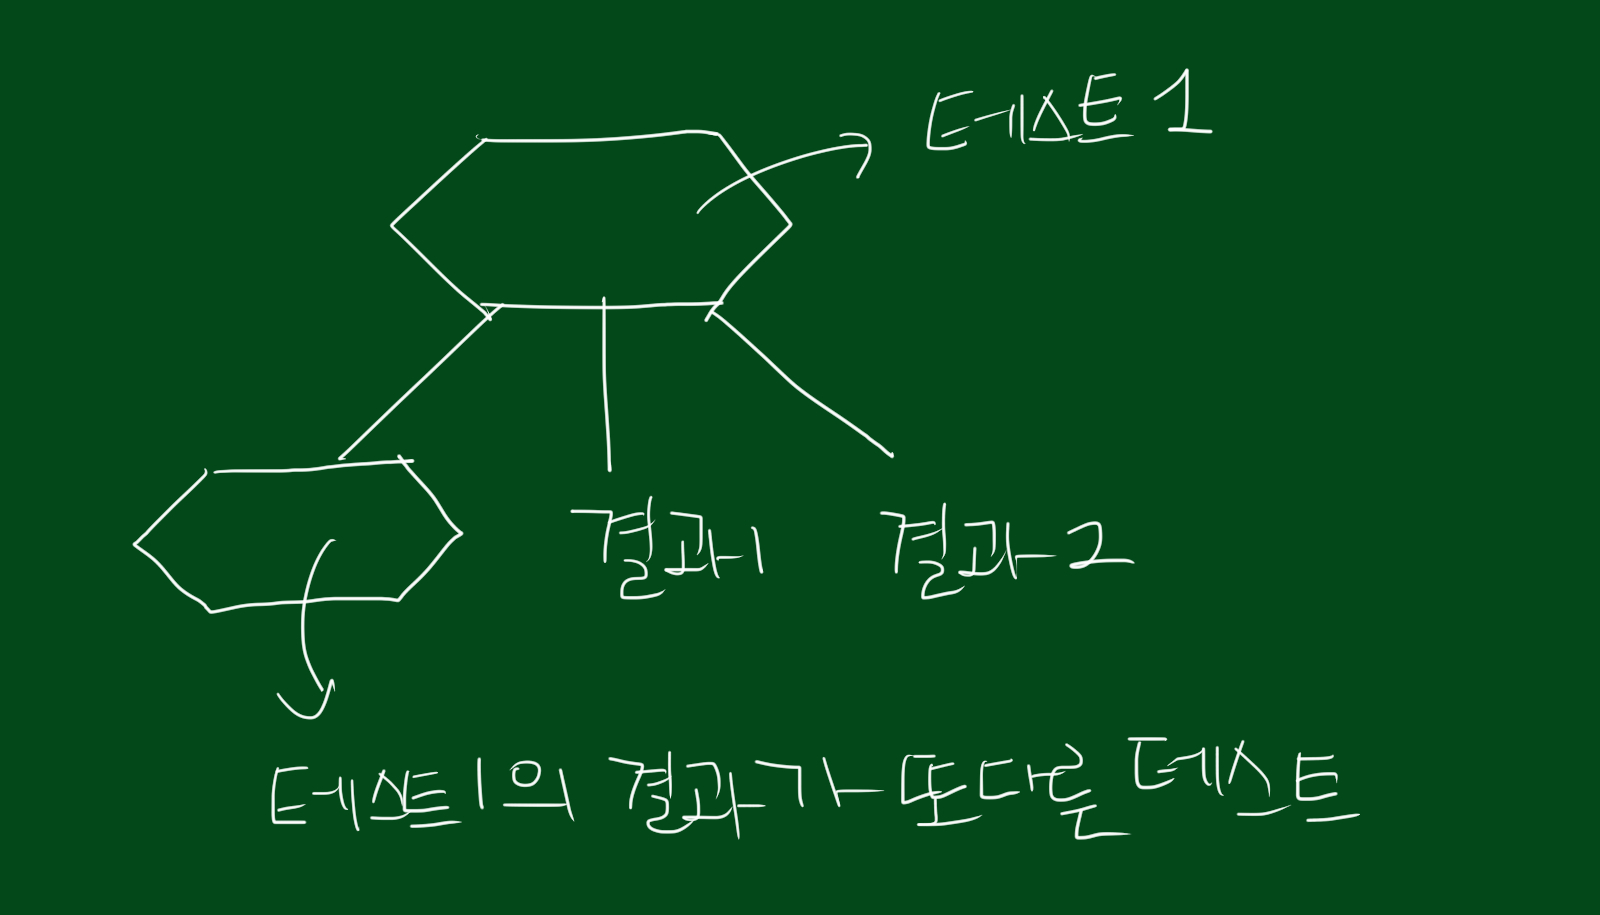 테스트 1
결과1
결과2
테스트1의 결과가 또다른 테스트